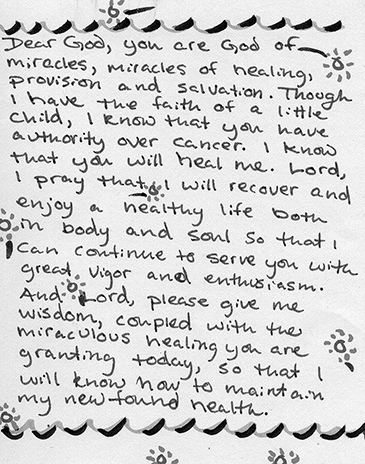 Dear God, you are God of
miracles, miracles of healing,
provision and salvation. Though
I have the faith of a little
child, I know that you have
authority over cancer. I know
that you will heal me. Lord,
I pray that I will recover and
enjoy a healthy life both
in body and soul so that I
can continue to serve you with
great vigor and enthusiasm.
And Lord, please give me
wisdom, coupled with the
miraculous healing you are
granting today, so that I
will know how to maintain
my new-found health.